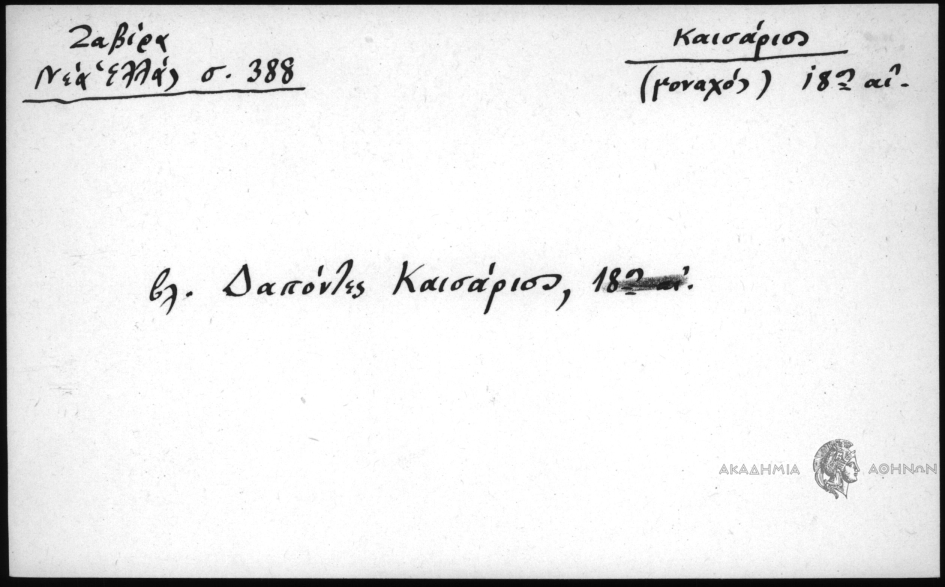 Ζαβίρα
Νέα Ἑλλάς σ. 388
Καισάριος
(μοναχός) 18ος αἰ.
βλ. Δαπόντες Καισάριος, 18ος αἰ.
ΑΚΑΔΗΜΙΑ ΑΘΗΝΩΝ